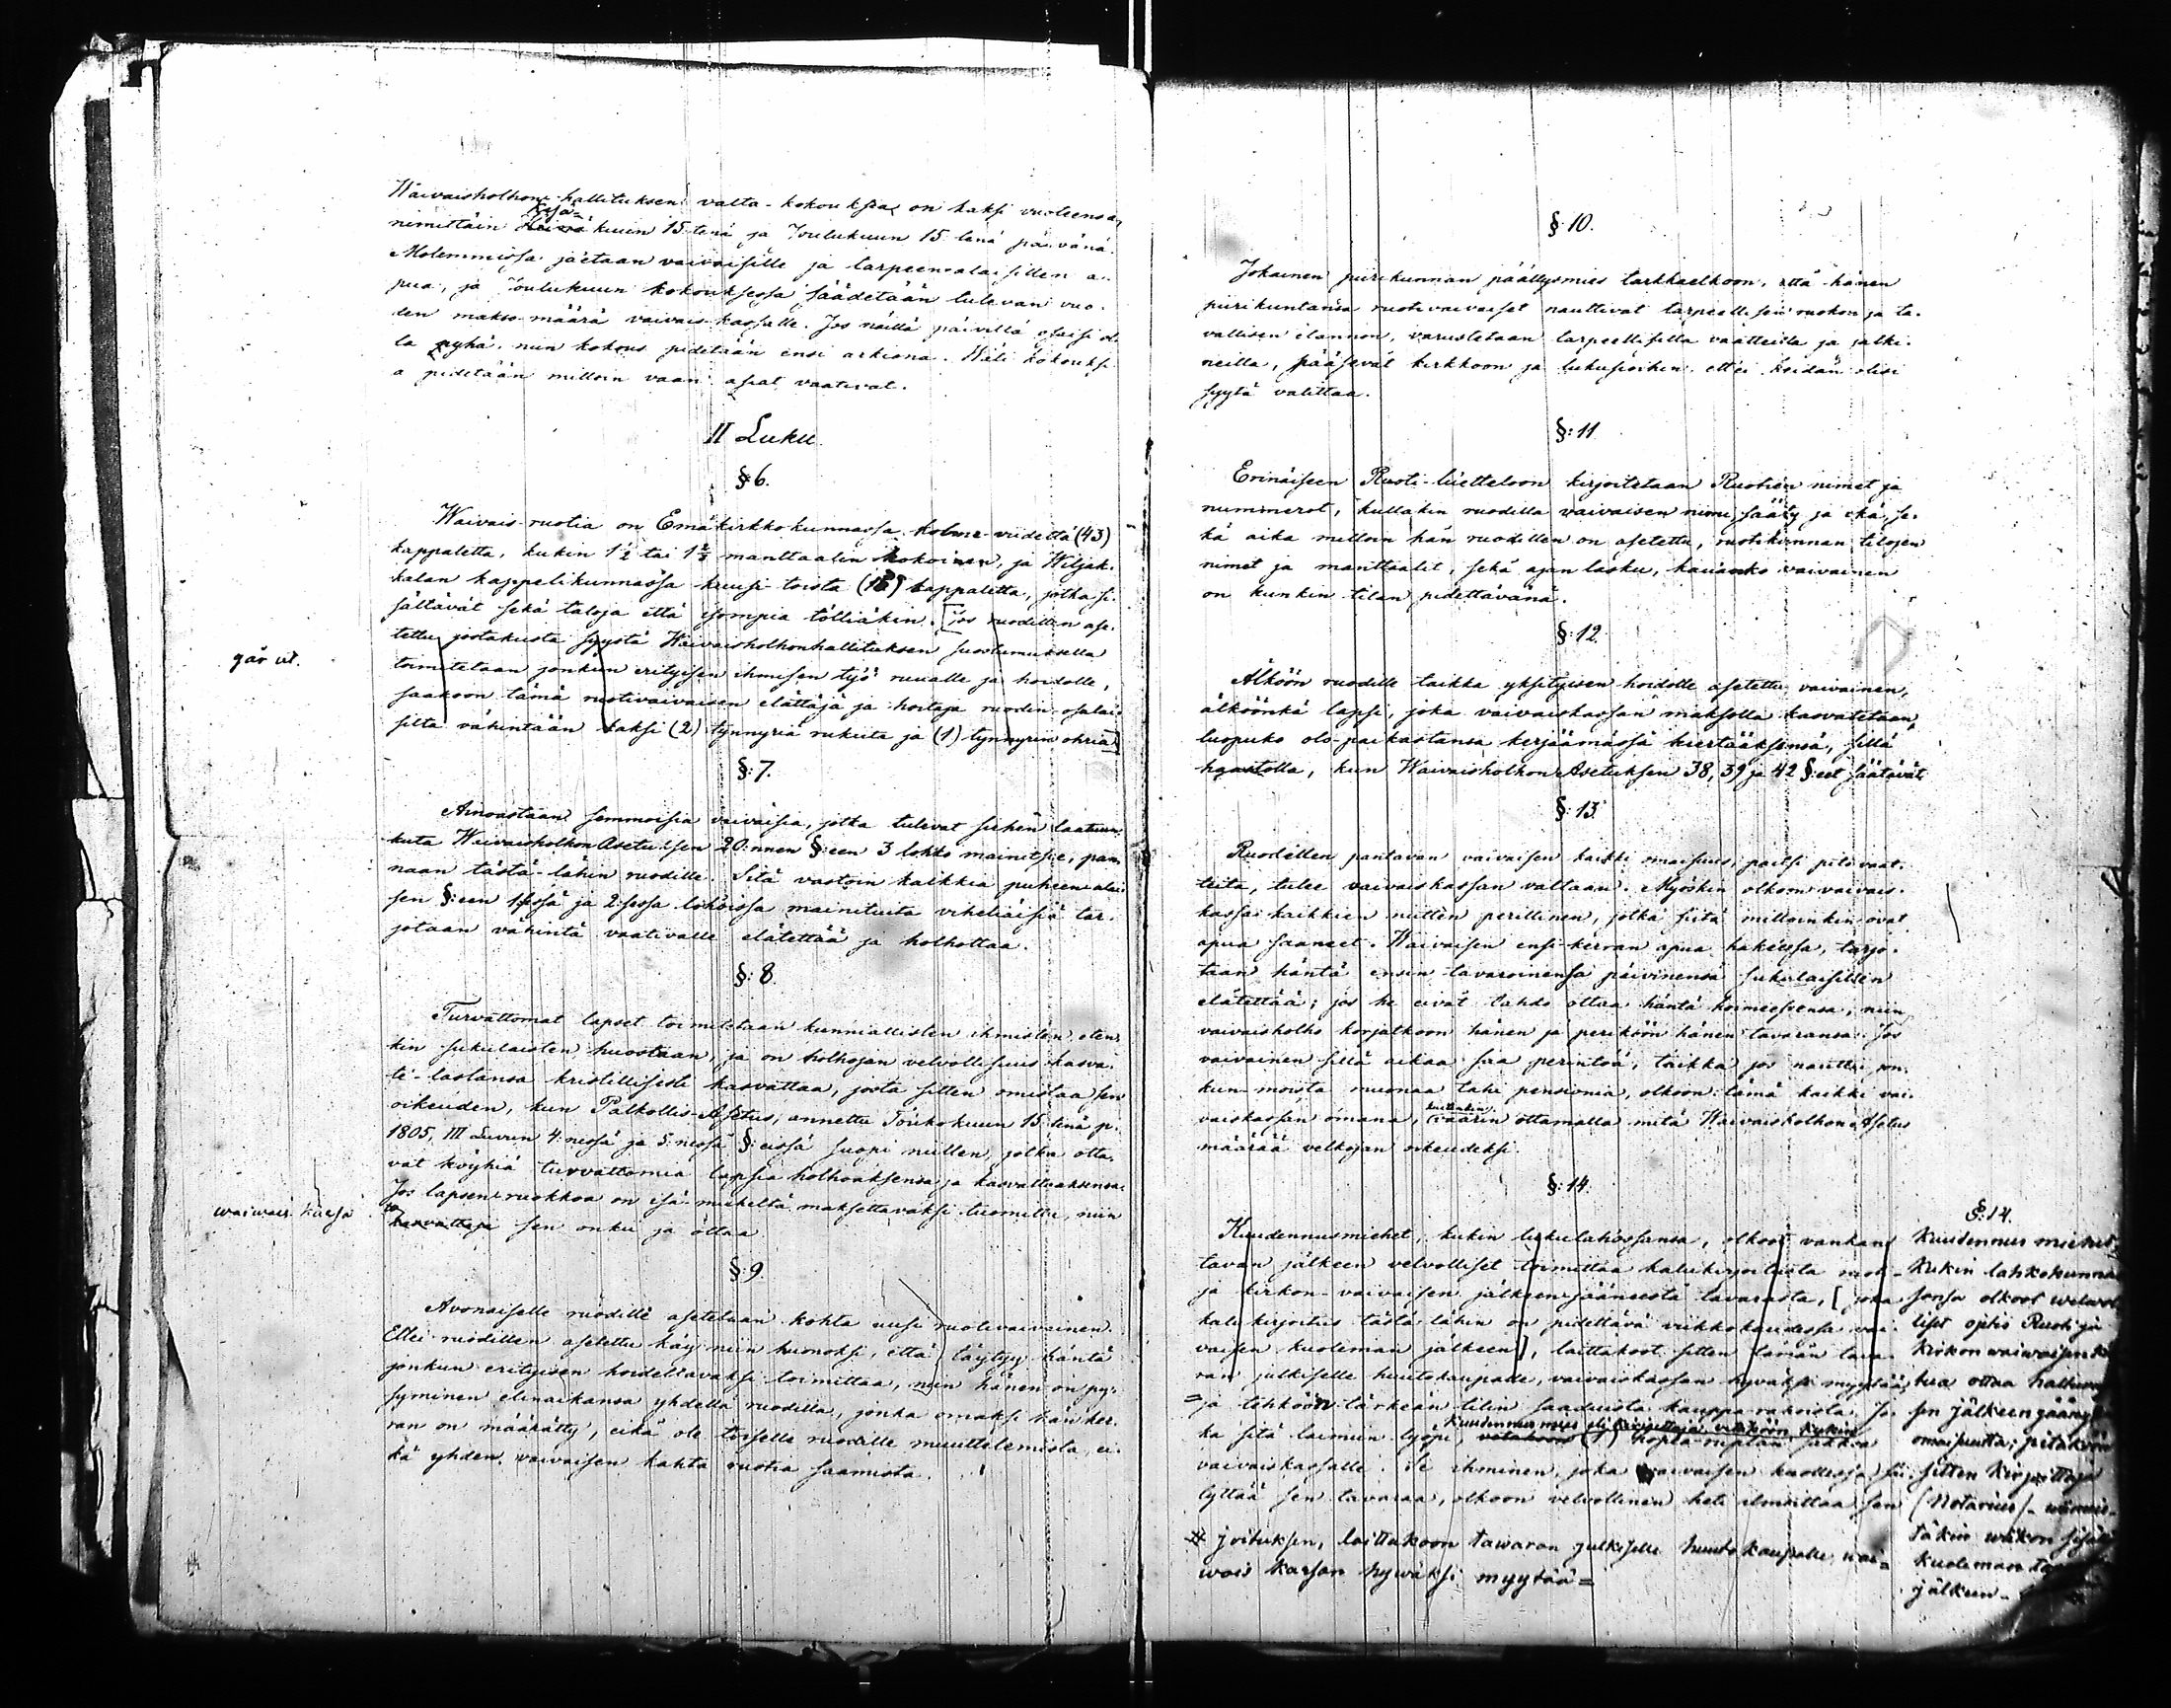 Waivaisholhon hallituksen valta-kokouksia on kaksi vuoteensa,
nimittäin Kesä= kuun 15 tenä ja Joulukuun 15 tenä päivänä.
Molemmissa jaetaan vaivaisille ja tarpeenalaisillen a-
pua, ja Joulukuun kokouksessa säädetään tulevan vuo-
den makso-määrä vaivais-kassalle. Jos näillä päivillä osaisi ol-
la pyhä, niin kokous pidetään ensi arkiona. Väli kokouksi-
a pidetään milloin vaan asiat vaativat.
II Luku.
§ 6.
Waivais-ruotia on Emäkirkkokunnassa kolme-viidettä (43)
kappaletta, kukin 1½ tai 1⅔ manttaalin kokoinen, ja Wiljak-
kalan kappelikunnassa kuusi-toista (16) kappaletta, jotka si-
sältävät sekä taloja että isompia tölliäkin. [Jos ruodillen ase-
tettu jostakusta syystä Waivaisholhonhallituksen suostumuksella
toimitetaan jonkun erityisen ihmisen työ ruualle ja hoidolle,
saakoon tämä ruotivaivaisen elättäjä ja hoitaja ruodin osalai-
silta vähintään kaksi (2) tynnyriä rukiita ja (1) tynnyrin ohria]
går ut.
§: 7.
Ainoastaan semmoisia vaivaisia, jotka tulevat siihen laatuun
kuta Waivaisholhon Asetuksen 20:nnen §:een 3 lohko mainitsee, pan-
naan tästä-lähin ruodille. Sitä vastoin kaikkia puheenalai-
sen §:een 1:ssä ja 2:ssa lohoissa mainituita viheliäisiä tar-
jotaan vähintä vaativalle elätettää ja holhottaa.
§: 8.
Turvattomat lapset toimitetaan kunniallisten ihmisten, eten-
kin sukulaisten huostaan, ja on holhojan velvollisuus kasva-
ti-lastansa kristillisesti kasvattaa, josta sitten omistaa sen
oikeuden, kun Palkollis-Asetus, annettu Toukokuun 15 tenä p.
1805, III Luvun 4:nessä ja 5:nessä §:eissä suopi niillen, jotka otta-
vat köyhiä turvattomia lapsia holhoaksensa ja kasvattaaksensa.
Jos lapsen ruokkoa on isä-mieheltä maksettavaksi tuomittu, niin
kasvattaja sen onki ja ottaa
waiwais kassa
§: 9.
Avonaiselle ruodille asetetaan kohta uusi ruotivaivainen.
Ellei ruodillen asetettu käy niin huonoksi, että täytyy häntä
jonkun erityisen hoidettavaksi toimittaa, niin hänen on py-
syminen elinaikansa yhdellä ruodilla, jonka omaksi hän ker-
ran on määrätty, eikä ole toiselle ruodille muuttelemista, ei-
kä yhden vaivaisen kahta ruotia saamista.
§: 10.
Jokainen piirikunnan päällysmies tarkkaelkoon, että hänen
piirikuntansa ruotivaivaiset nauttivat tarpeellisen ruokon ja ta-
vallisen elannon, varustetaan tarpeellisilla vaatteilla ja jalki-
neilla, pääsevät kirkkoon ja lukusioihin ettei heidän olisi
syytä valittaa.
§: 11
Erinäiseen Ruoti-luetteloon kirjoitetaan Ruotien nimet ja
nummerot, kullakin ruodilla vaivaisen nimi, sääty ja ikä, se-
kä aika milloin hän ruodillen on asetettu, ruotikunnan tilojen
nimet ja manttaalit, sekä ajan lasku, kauanko vaivainen
on kunkin tilan pidettävänä.
§: 12.
Älköön ruodille taikka yksityisen hoidolle asetettu vaivainen,
älköönkä lapsi, joka vaivaiskassan maksolla kasvatetaan,
luopuko olo-paikastansa kerjäämässä kiertääksensä, sillä
haastolla, kun Waivaisholhon Asetuksen 38, 39 ja 42 §:eet säätävät
§: 13.
Ruodillen pantavan vaivaisen kaikki omaisuus, paitsi pitovaat-
teita, tulee vaivaiskassan valtaan. Myöskin olkoon vaivais-
kassa kaikkien niitten perillinen, jotka siitä milloinkin ovat
apua saaneet. Waivaisen ensi-kerran apua hakiessa, tarjo-
taan häntä ensin tavaroinensa päivinensä sukulaisillen
elätettää; jos he eivät tahdo ottaa häntä hoimeesensa, niin
vaivaisholho korjatkoon hänen ja periköön hänen tavaransa. Jos
vaivainen sillä aikaa saa perintöä, taikka jos nauttii jon-
kun-moista muonaa tahi pensionia, olkoon tämä kaikki vai-
vaiskassan omana, kuitenkin väärin ottamalla mitä Waivaisholhon Asetus
määrää velkojan oikeudeksi.
§: 14.
Kuudennusmiehet, kukin lukulahossansa, olkoot vanhan
tavan jälkeen velvolliset toimittaa kalukirjoitusta ruoti-
ja kirkon-vaivaisen jälkeenjääneestä tavarasta, [joka
kalukirjoitus tästä lähin on pidettävä viikkokaudessa vai-
vaisen kuoleman jälkeen], laittakoot sitten tämän tava-
ran julkiselle huutokaupalle, vaivaiskassan hyväksi myytää,
= ja tehköön tärkeän tilin saaduista kauppa-rahoista. Jo-
ka sitä laimiin lyöpi, Kuudennusmies eli kirjoittaja vetäköön kukin (1) hopia-ruplan sakkoa
vaivaiskassalle. Se ihminen, joka vaivaisen kuollessa säi-
lyttää sen tavaraa, olkoon velvollinen heti ilmoittaa sen
# joituksen, laittakoon tawaran julkiselle huutokaupalle, wai=
wais kassan hywäksi myytää =
§: 14.
Kuudennus miehet,
kukin lahkokunnas-
sansa olkoot welwol-
liset ... Ruoti ja
kirkon waiwaisen
... ottaa haltuun
sen jälkeen jääny
omaisuutta; pitäköön
sitten kirjoittaja
(Notarius) - wiimeis-
täkin wiikon sisällä
kuoleman
jälkeen -